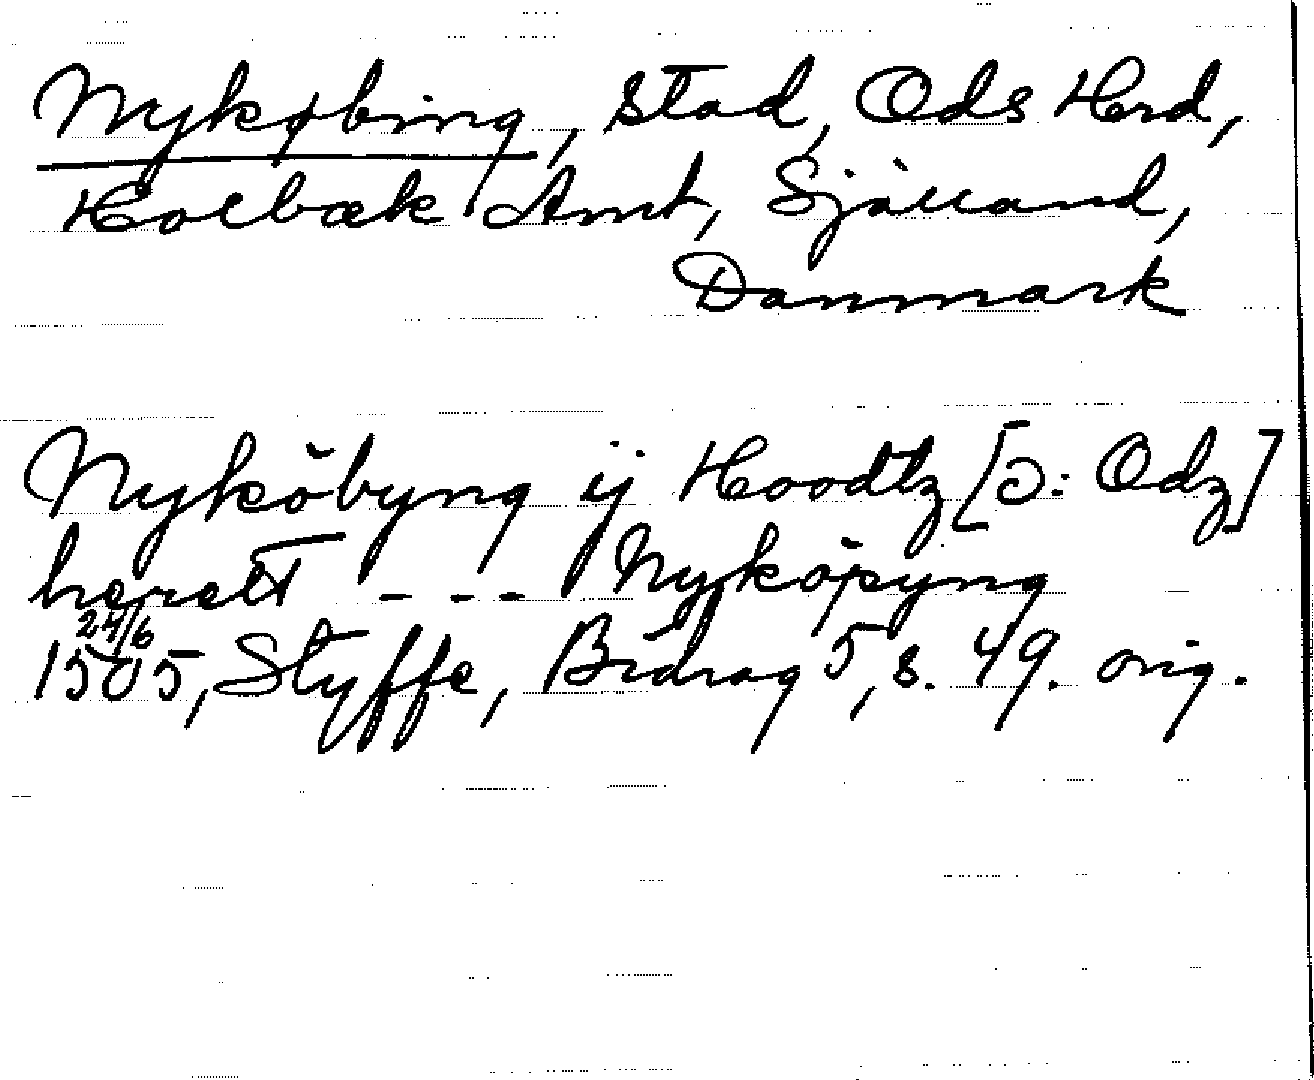 Nykøbing, stad, Ods Herd,
Holbæk Amt, Sjælland,
Danmark
Nyköbyng ij Hoodtz [ɔ: Odz]
herett --- Nyköpyng
24/6
1505, Styffe, Bidrag 5, s. 49. orig.